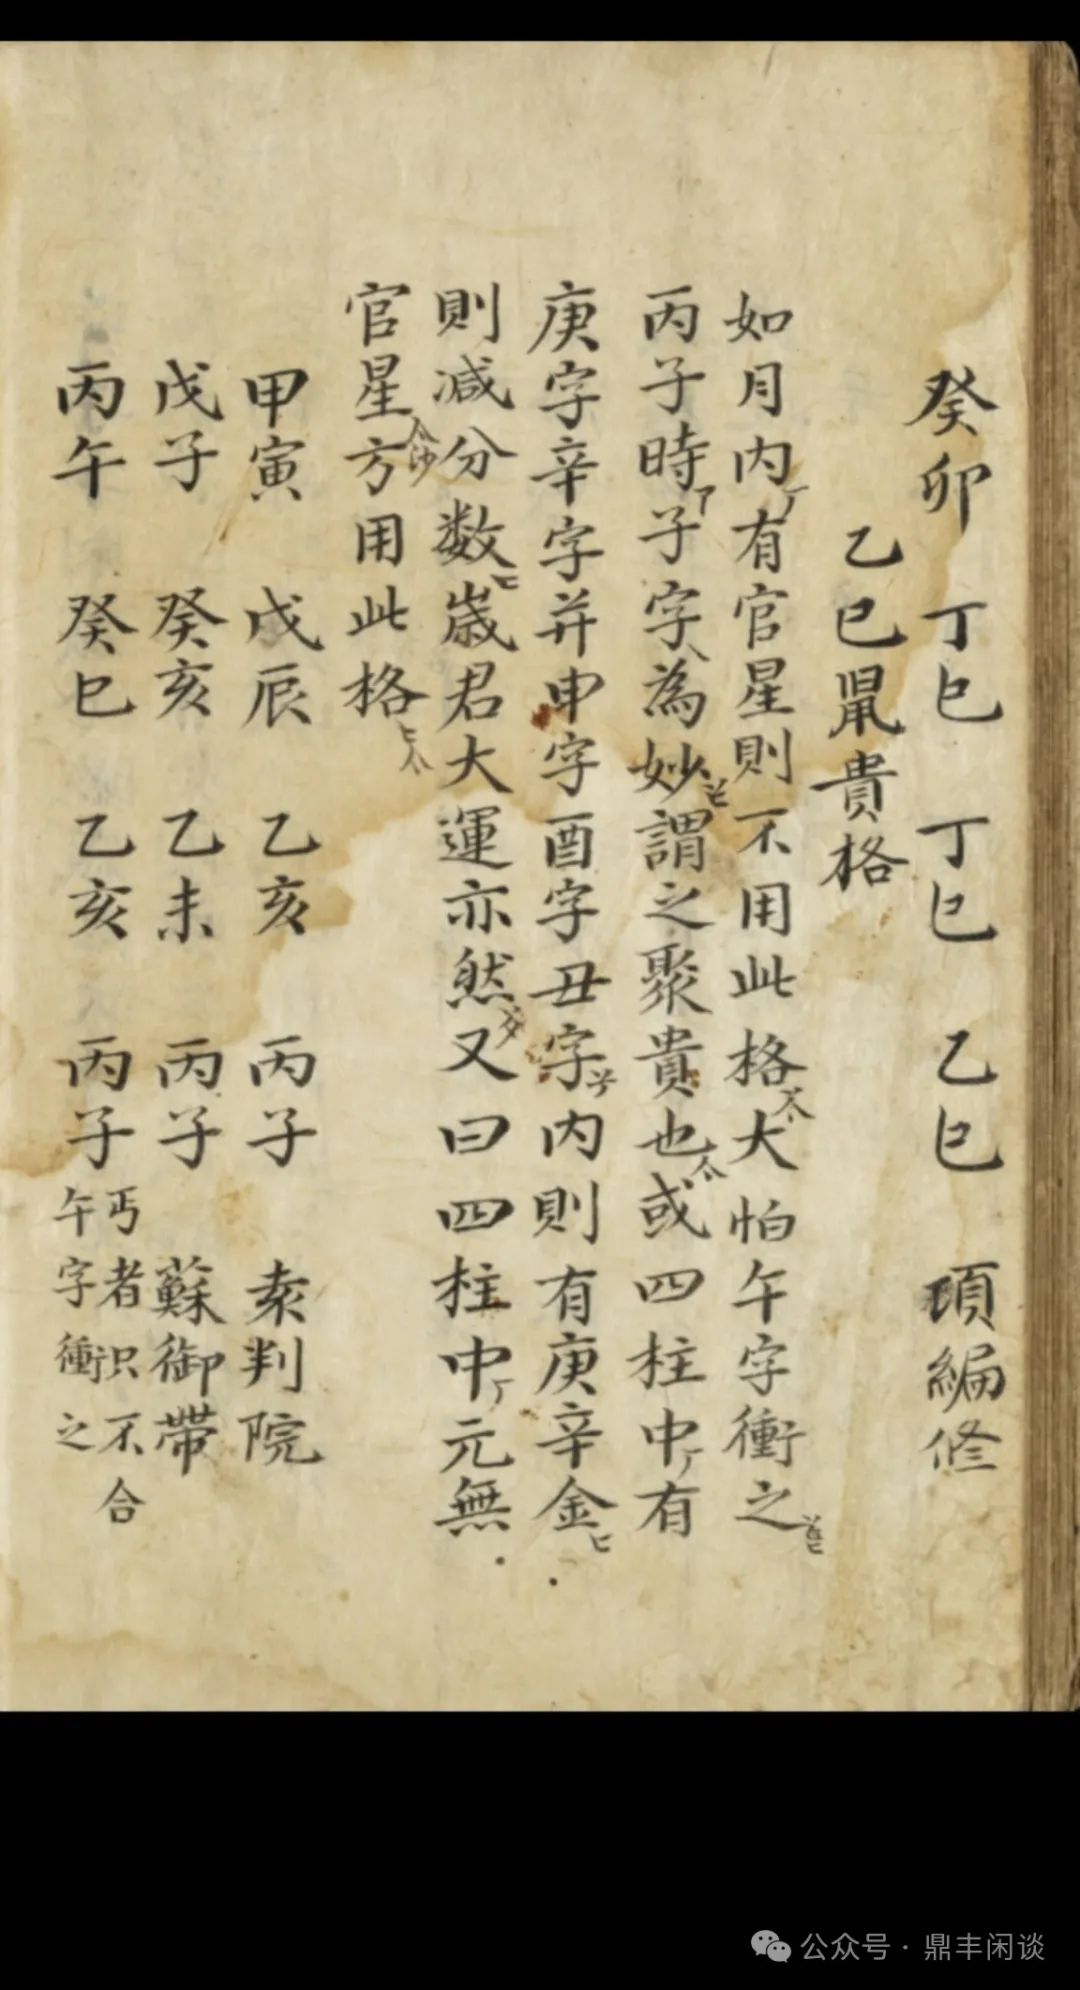 癸卯 丁巳 丁巳 乙巳 項編修
乙巳鼠貴格
如月内有官星則不用此格大怕午字衝之
丙子時子字為妙謂之聚貴也或四柱中有
庚字辛字并申字酉字丑字内則有庚辛金
則减分数歲君大運亦然又曰四柱中元無
官星方用此格
甲寅 戊辰 乙亥 丙子 判院
戊子 癸亥 乙未 丙子 蘇御帶
丙午 癸巳 乙亥 丙子 丐者只不合
午字衝之
公众号·鼎丰闲谈